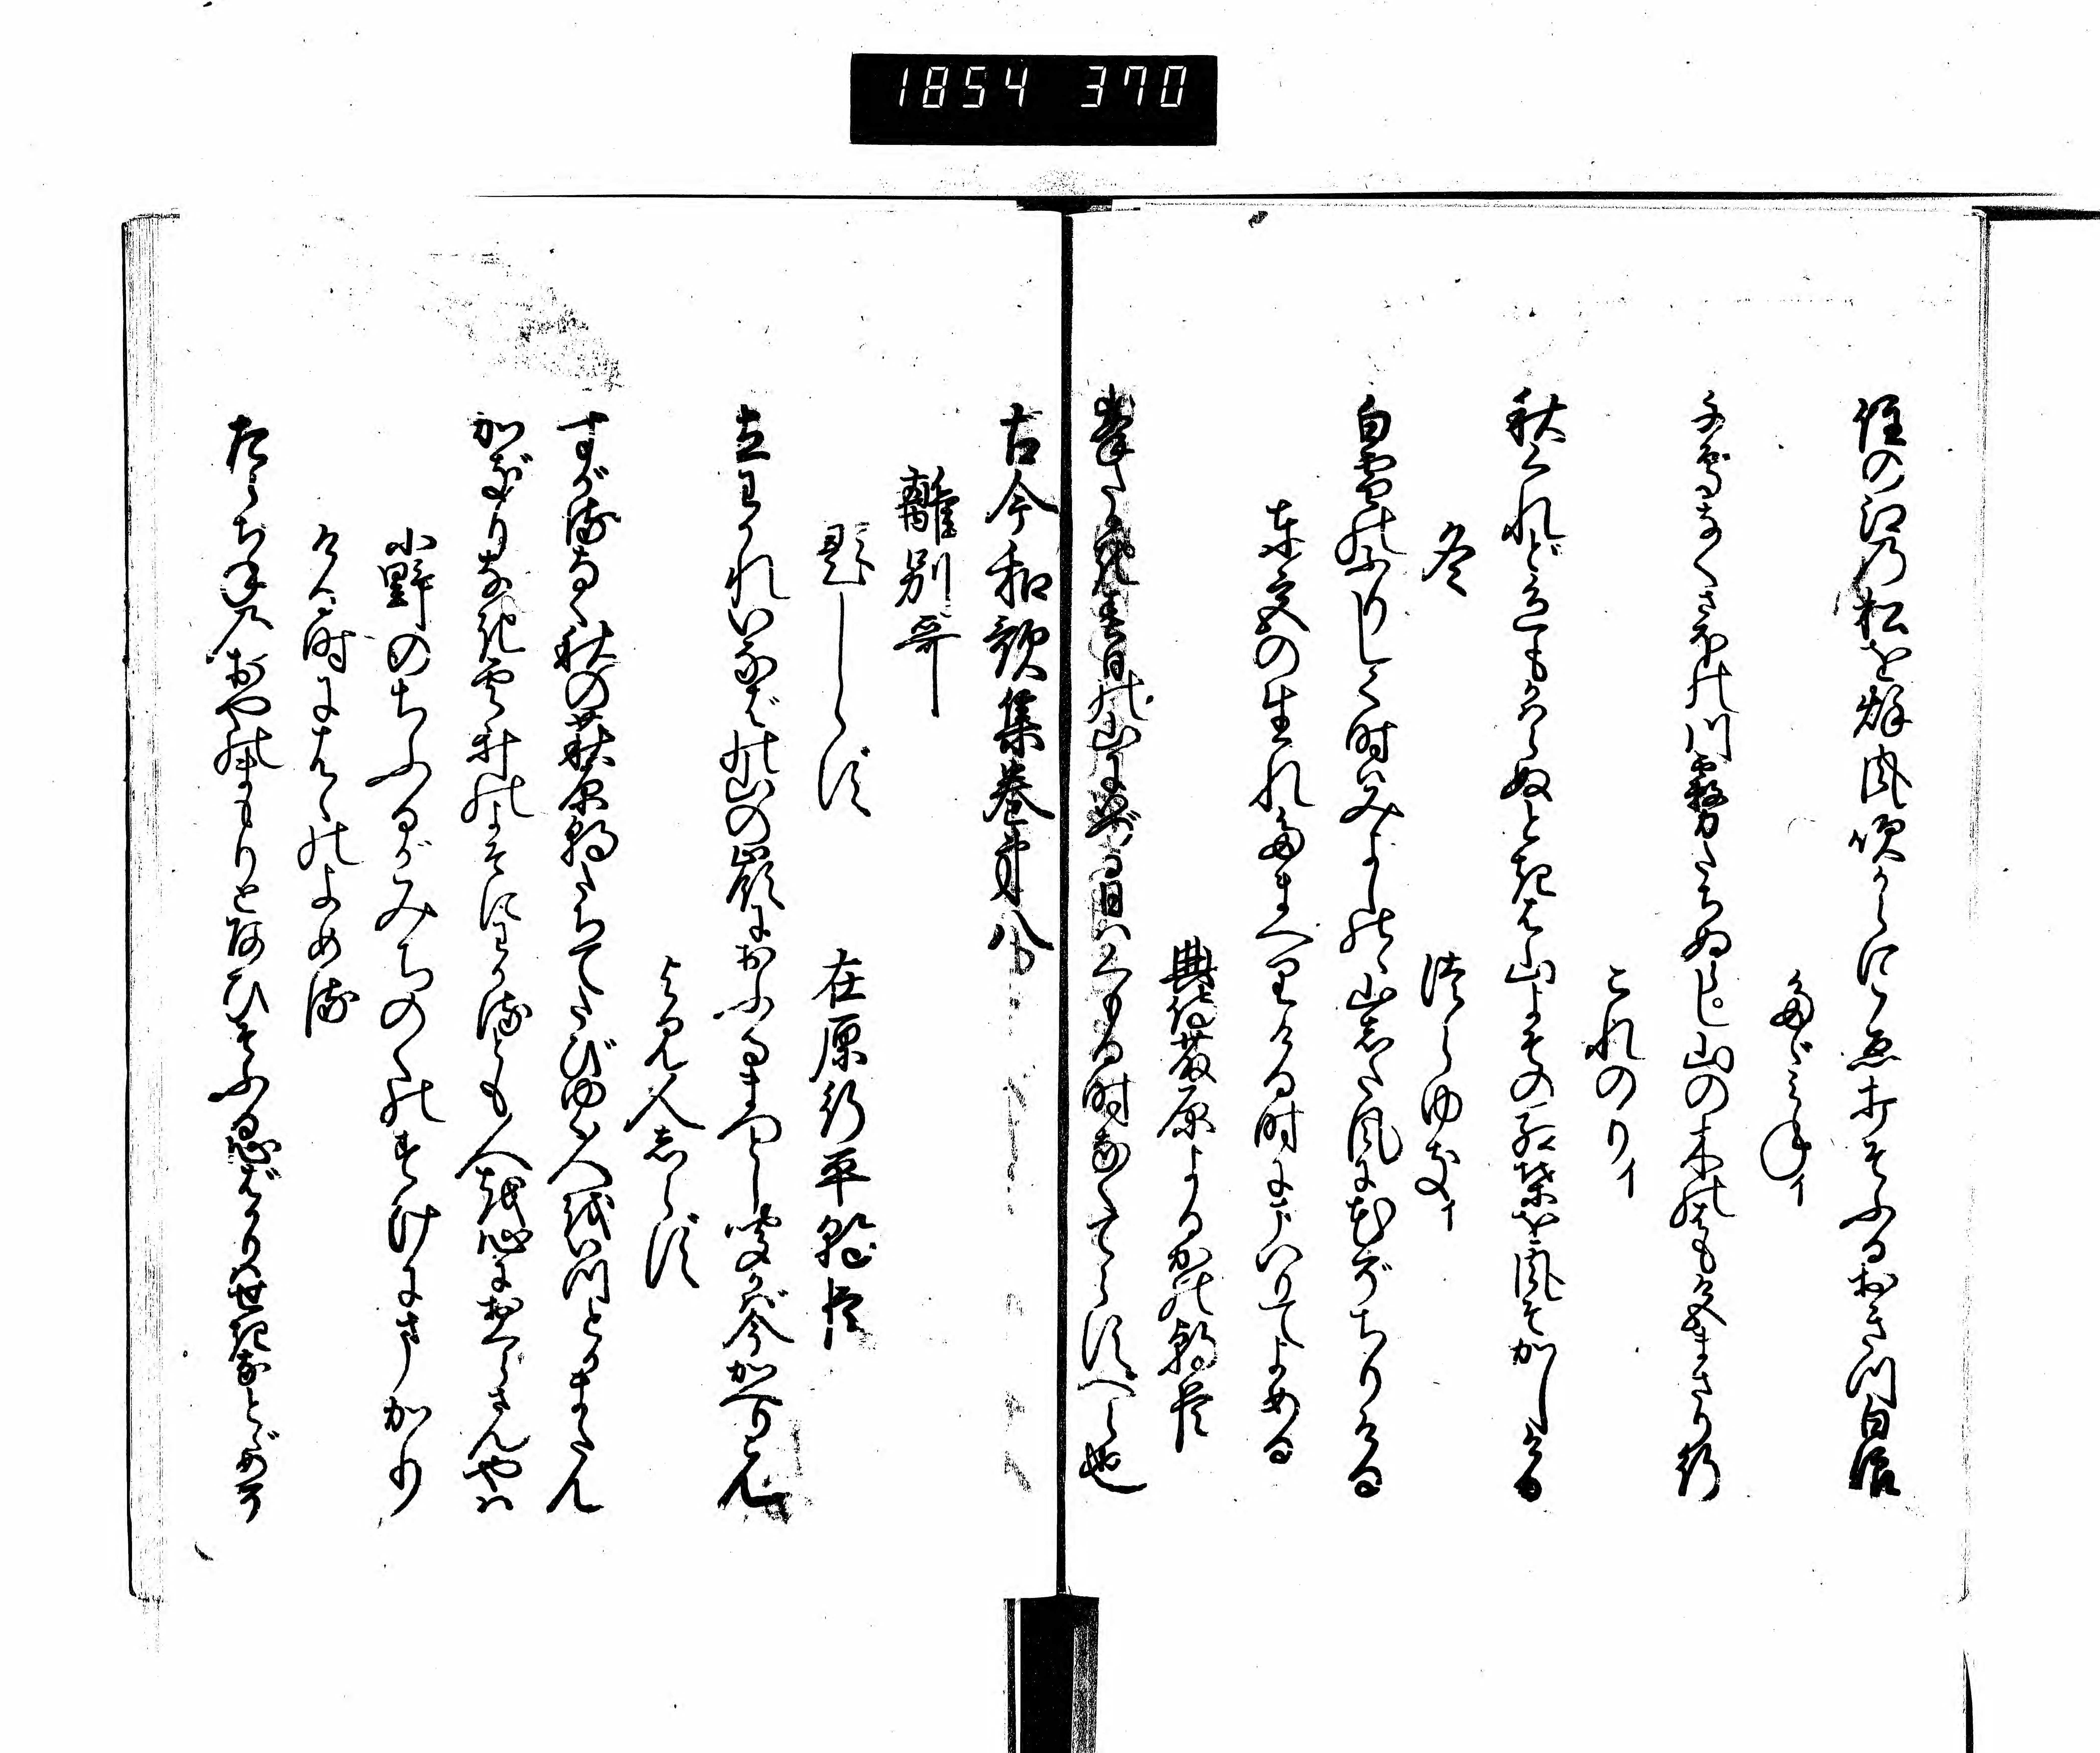 1854 370
住の江乃松を秌風吹からに声打そふるおきつ白浪
みつねイ
千鳥なくさほの川霧たちぬらし山の木の葉も色まさり行
これのりイ
秋くれど色もかはらぬときは山よその紅葉を風そかしける
冬
つらゆきイ
白雪のふりしく時はみよしのゝ山した風に花ぞちりける
春宮の生れたまへりける時にまいりてよめる
典侍藤原よるかの朝臣
峯たかき春日の山に出る日はくもる時なくてらすへら也
古今和歌集巻第八
離別哥
題しらず
在原行平朝臣
立わかれいなばの山の嶺におふるまつとし聞かば今かへりこん
よみ人しらず
すがるなく秋の萩原朝たちてたびゆく人をいつとかまたん
かぎりなき雲井のよそにわかるとも人を心にをくらさんやは
小野のちふるがみちのくのすけにまかり
ける時にはゝのよめる
たらちねのおやのまもりとあひそふる心ばかりはせきなとゞめそ